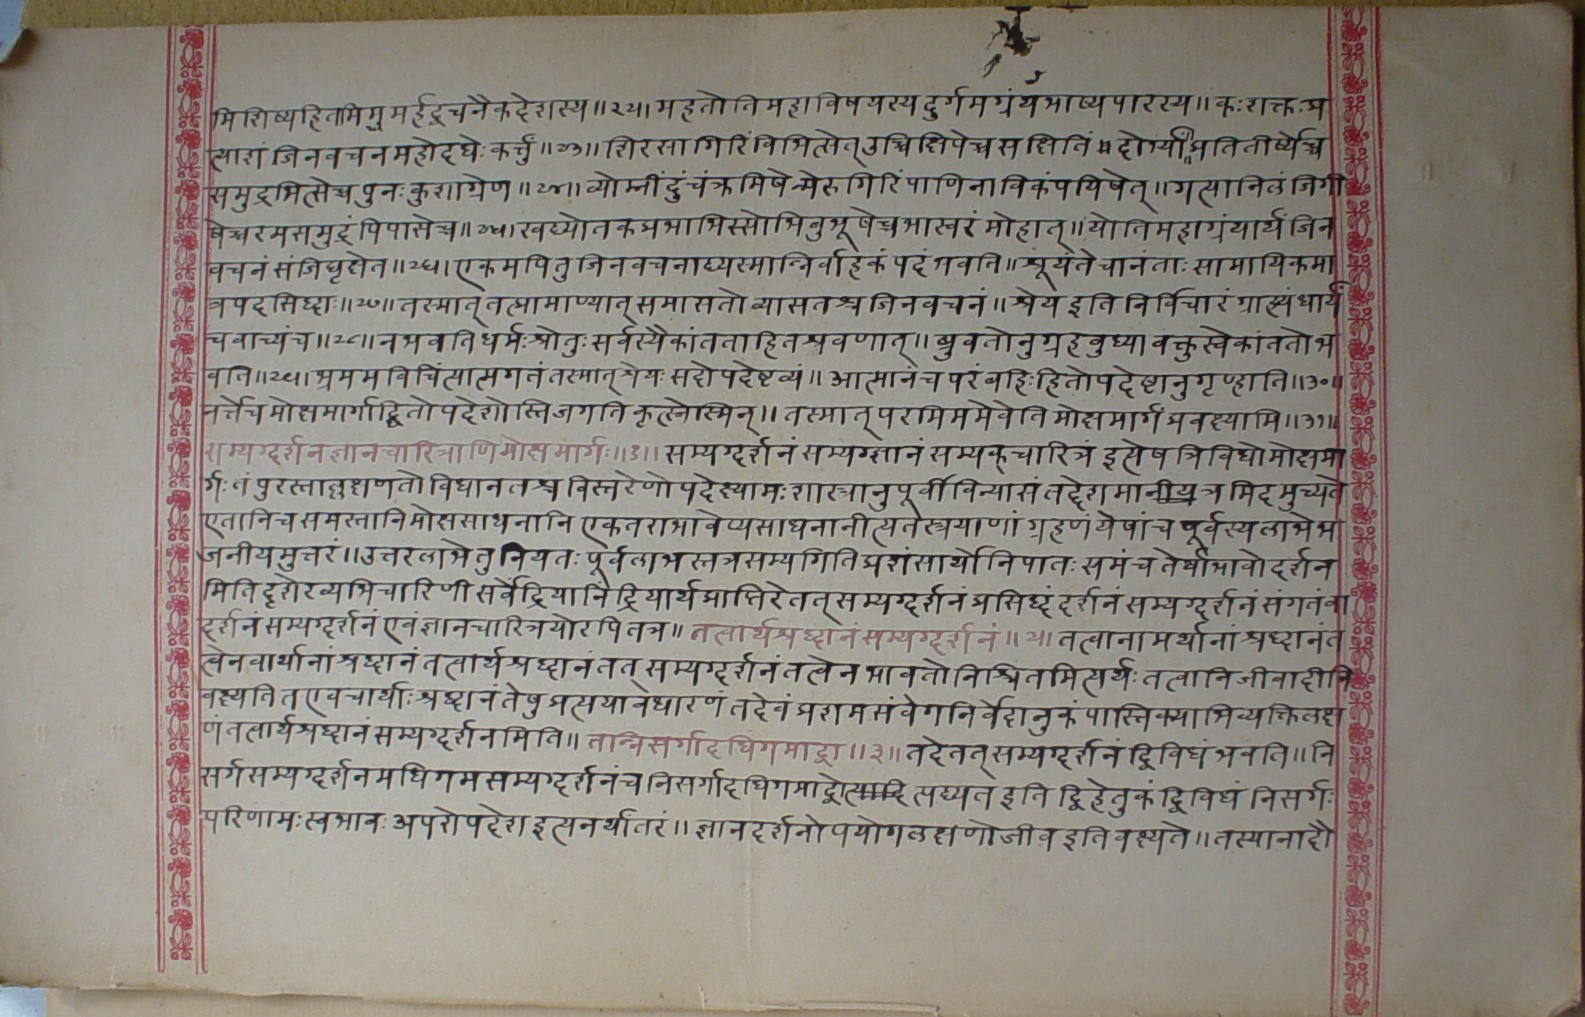 मि शिष्यहितमिममर्हद्वचनैकदेशस्य॥२२॥ महतोतिमहाविषयस्य दुर्गमग्रंथभाष्यपारस्य॥ कःशक्तःप्र
त्याशं जिनवचनमहोदधेः कर्त्तुं॥२३॥ शिरसा गिरिं विभित्सेत् उच्चिक्षिपेच्च स क्षितिं दोर्भ्यां॥ प्रतितीर्ष्येच्च
समुद्रं मित्सेच्च पुनः कुशाग्रेण॥२४॥ व्योम्नींदुं चंक्रमिषेन्मेरुगिरिं पाणिना विकंपयिषेत्॥ गत्यानिलं जिगी
षेच्चरमसमुद्रं पिपासेच्च॥२५॥ खद्योतकप्रभाभिस्सोभिबुभूषेच्च भास्करं मोहात्॥ योतिमहाग्रंथार्थं जिन
वचनं संजिघृक्षेत॥२६॥ एकमपि तु जिनवचनाद्यस्मान्निर्वाहकं पदं भवति॥ श्रूयंते चानंताः सामायिकमा
त्रपदसिद्धाः॥२७॥ तस्मात् तत्प्रामाण्यात् समासतो व्यासतश्च जिनवचनं॥ श्रेय इति निर्विचारं ग्राह्यं धार्यं
च वाच्यं च॥२८॥ न भवति धर्मः श्रोतुः सर्वस्यैकांतता हितश्रवणात्॥ ब्रुवतोनुग्रहबुध्या वक्तुस्त्वेकांततो भ
वति॥२९॥ श्रममविचिंत्यात्मगतं तस्मात् श्रेयः सदोपदेष्टव्यं॥ आत्मानं च परं च हि हितोपदेष्टानुगृण्हाति॥३०॥
नर्त्ते च मोक्षमार्गाद्धितोपदेशोस्ति जगति कृत्स्नेस्मिन्॥ तस्मात् परमिममेवेति मोक्षमार्गं प्रवक्ष्यामि॥३१॥
सम्यग्दर्शनज्ञानचारित्राणि मोक्षमार्गः॥१॥ सम्यग्दर्शनं सम्यग्ज्ञानं सम्यक्चारित्रं इत्येष त्रिविधो मोक्षमा
र्गः तं पुरस्ताल्लक्षणतो विधानतश्च विस्तरेणोपदेक्ष्यामः शास्त्रानुपूर्वीविन्यासं तद्देशमा त्र मिदमुच्यते
एतानि च समस्तानि मोक्षसाधनानि एकतराभावेप्यसाधनानीत्यतस्त्रयाणां ग्रहणं येषां च पूर्वस्य लाभे भ
जनीयमुत्तरं॥ उत्तरलाभे तु नियतः पूर्वलाभस्तत्र सम्यगिति प्रशंसार्थो निपातः समंचतेर्वा भावो दर्शन
मिति दृशेरव्यभिचारिणी सर्वेंद्रियानिंद्रियार्थप्राप्तिरेतत् सम्यग्दर्शनं प्रसिद्धं दर्शनं सम्यग्दर्शनं संगतं वा
दर्शनं सम्यग्दर्शनं एवं ज्ञानचारित्रयोरपि तत्र॥ तत्वार्थश्रद्धानं सम्यग्दर्शनं॥२॥ तत्वानामर्थानां श्रद्धानं त
त्वेन वार्थानां श्रद्धानं तत्वार्थश्रद्धानं तत् सम्यग्दर्शनं तत्वेन भावतो निश्चितमित्यर्थः तत्वानि जीवादीनि
वक्ष्यति त एव चार्थाः श्रद्धानं तेषु प्रत्ययावधारणं तदेवं प्रशमसंवेगनिर्वेदानुकंपास्तिक्याभिव्यक्तिलक्ष
णं तत्वार्थश्रद्धानं सम्यग्दर्शनमिति॥ तन्निसर्गादधिगमाद्वा॥३॥ तदेतत् सम्यग्दर्शनं द्विविधं भवति॥ नि
सर्गसम्यग्दर्शनमधिगमसम्यग्दर्शनं च निसर्गादधिगमाद्वो त्पद्यत इति द्विहेतुकं द्विविधं निसर्गः
परिणामः स्वभावः अपरोपदेश इत्यनर्थांतरं॥ ज्ञानदर्शनोपयोगलक्षणो जीव इति वक्ष्यते॥ तस्यानादौ